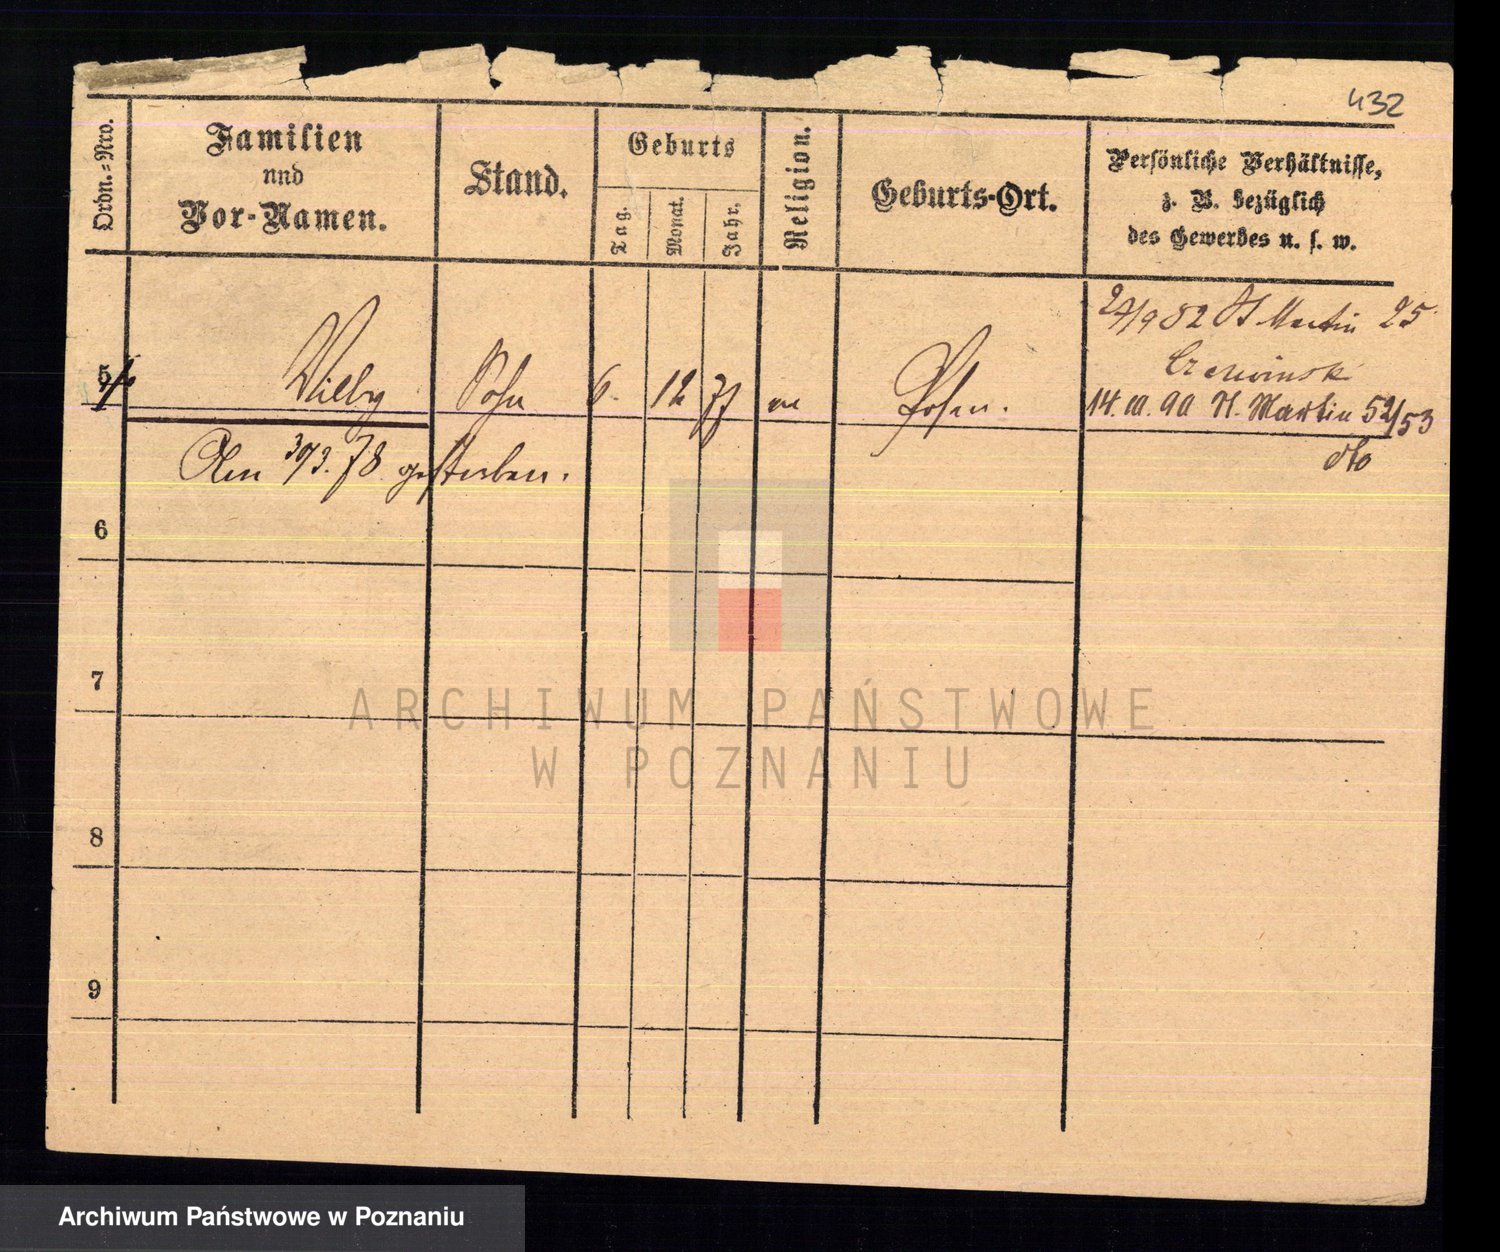 432
Ordn.-Nro.
Familien
und
Vor-Namen.
Stand.
Geburts
Tag.
Monat.
Jahr.
Religion.
Geburts-Ort.
Persönliche Verhältnisse,
z. B. bezüglich
des Gewerbes u. s. w.
St Martin 25
5 Willy Sohn 6. 12 77 Posen.
14.10.90 St. Martin 52/53
dto
Am 3/3. 78 gestorben.
6
7
8
9
ARCHIWUM PAŃSTWOWE
W POZNANIU
Archiwum Państwowe w Poznaniu